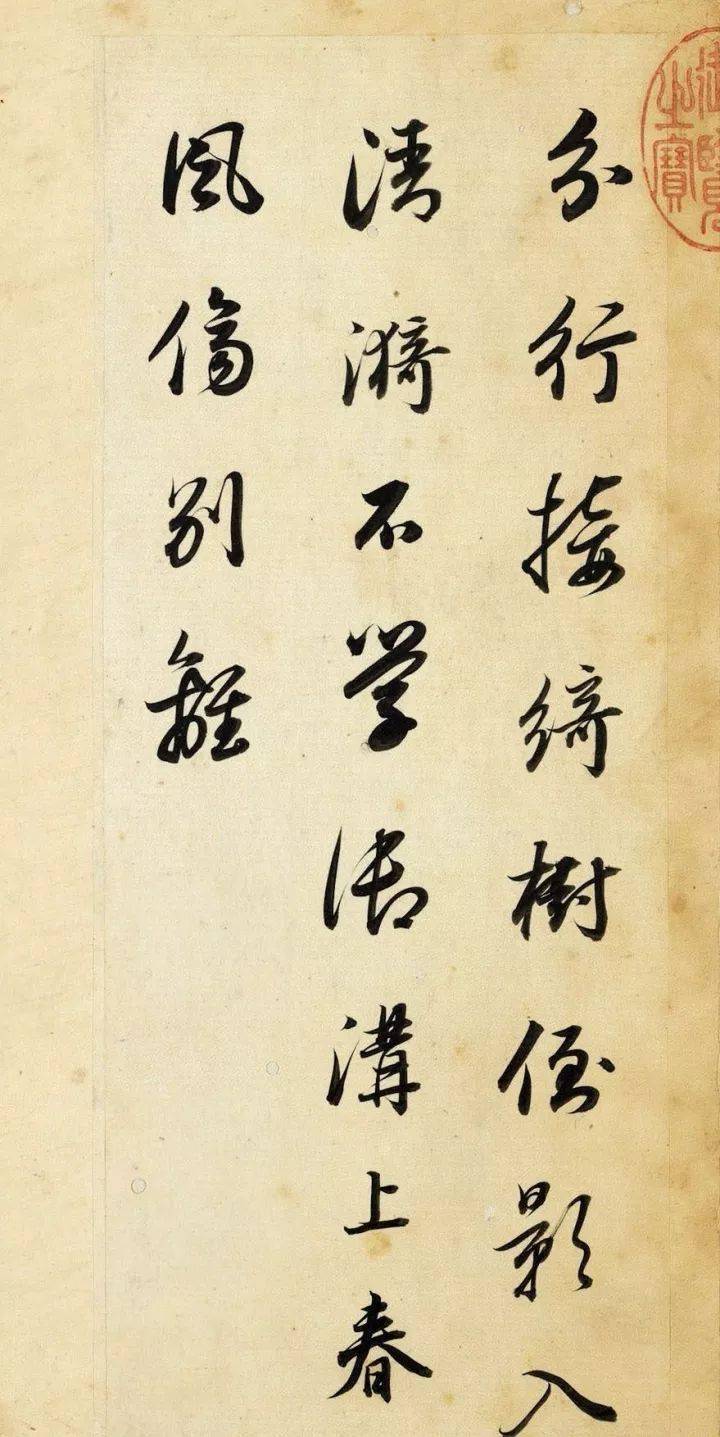 分行接綺樹倒影入
清漪不學御溝上春
風傷別離
御覽
之寶